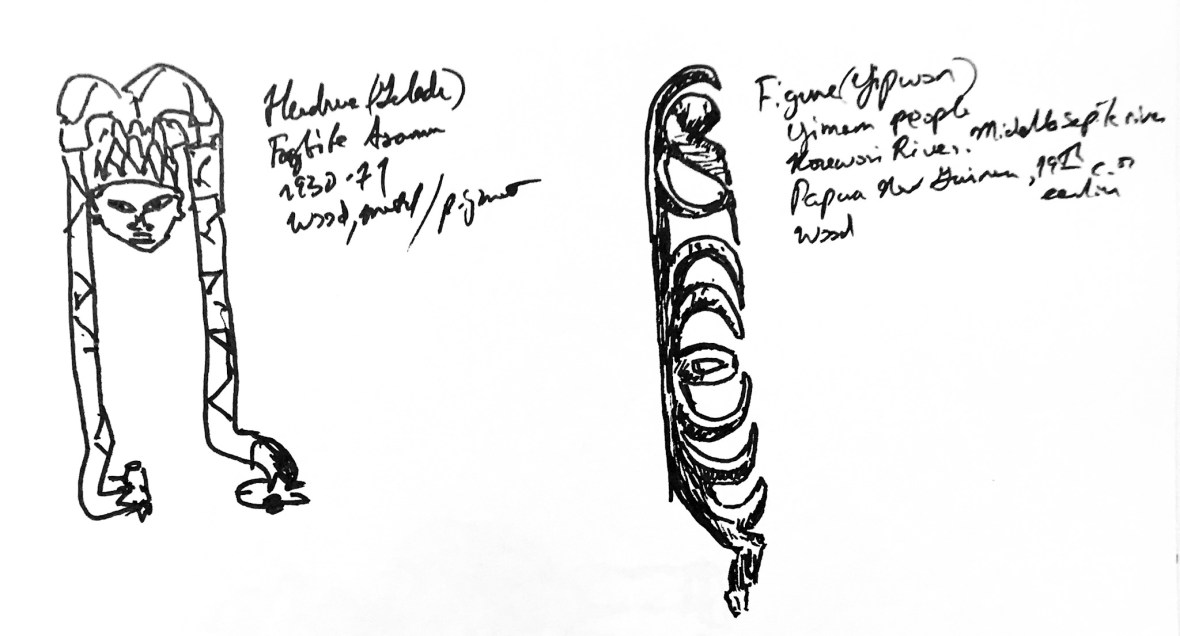 Headdress (Gelede)
Fagbite Asamu
1930-71
wood, metal/pigment
Figure (Yipwon)
Yimam people
Korewori River, Middle Sepik river
Papua New Guinea, 19th c. or
earlier
wood